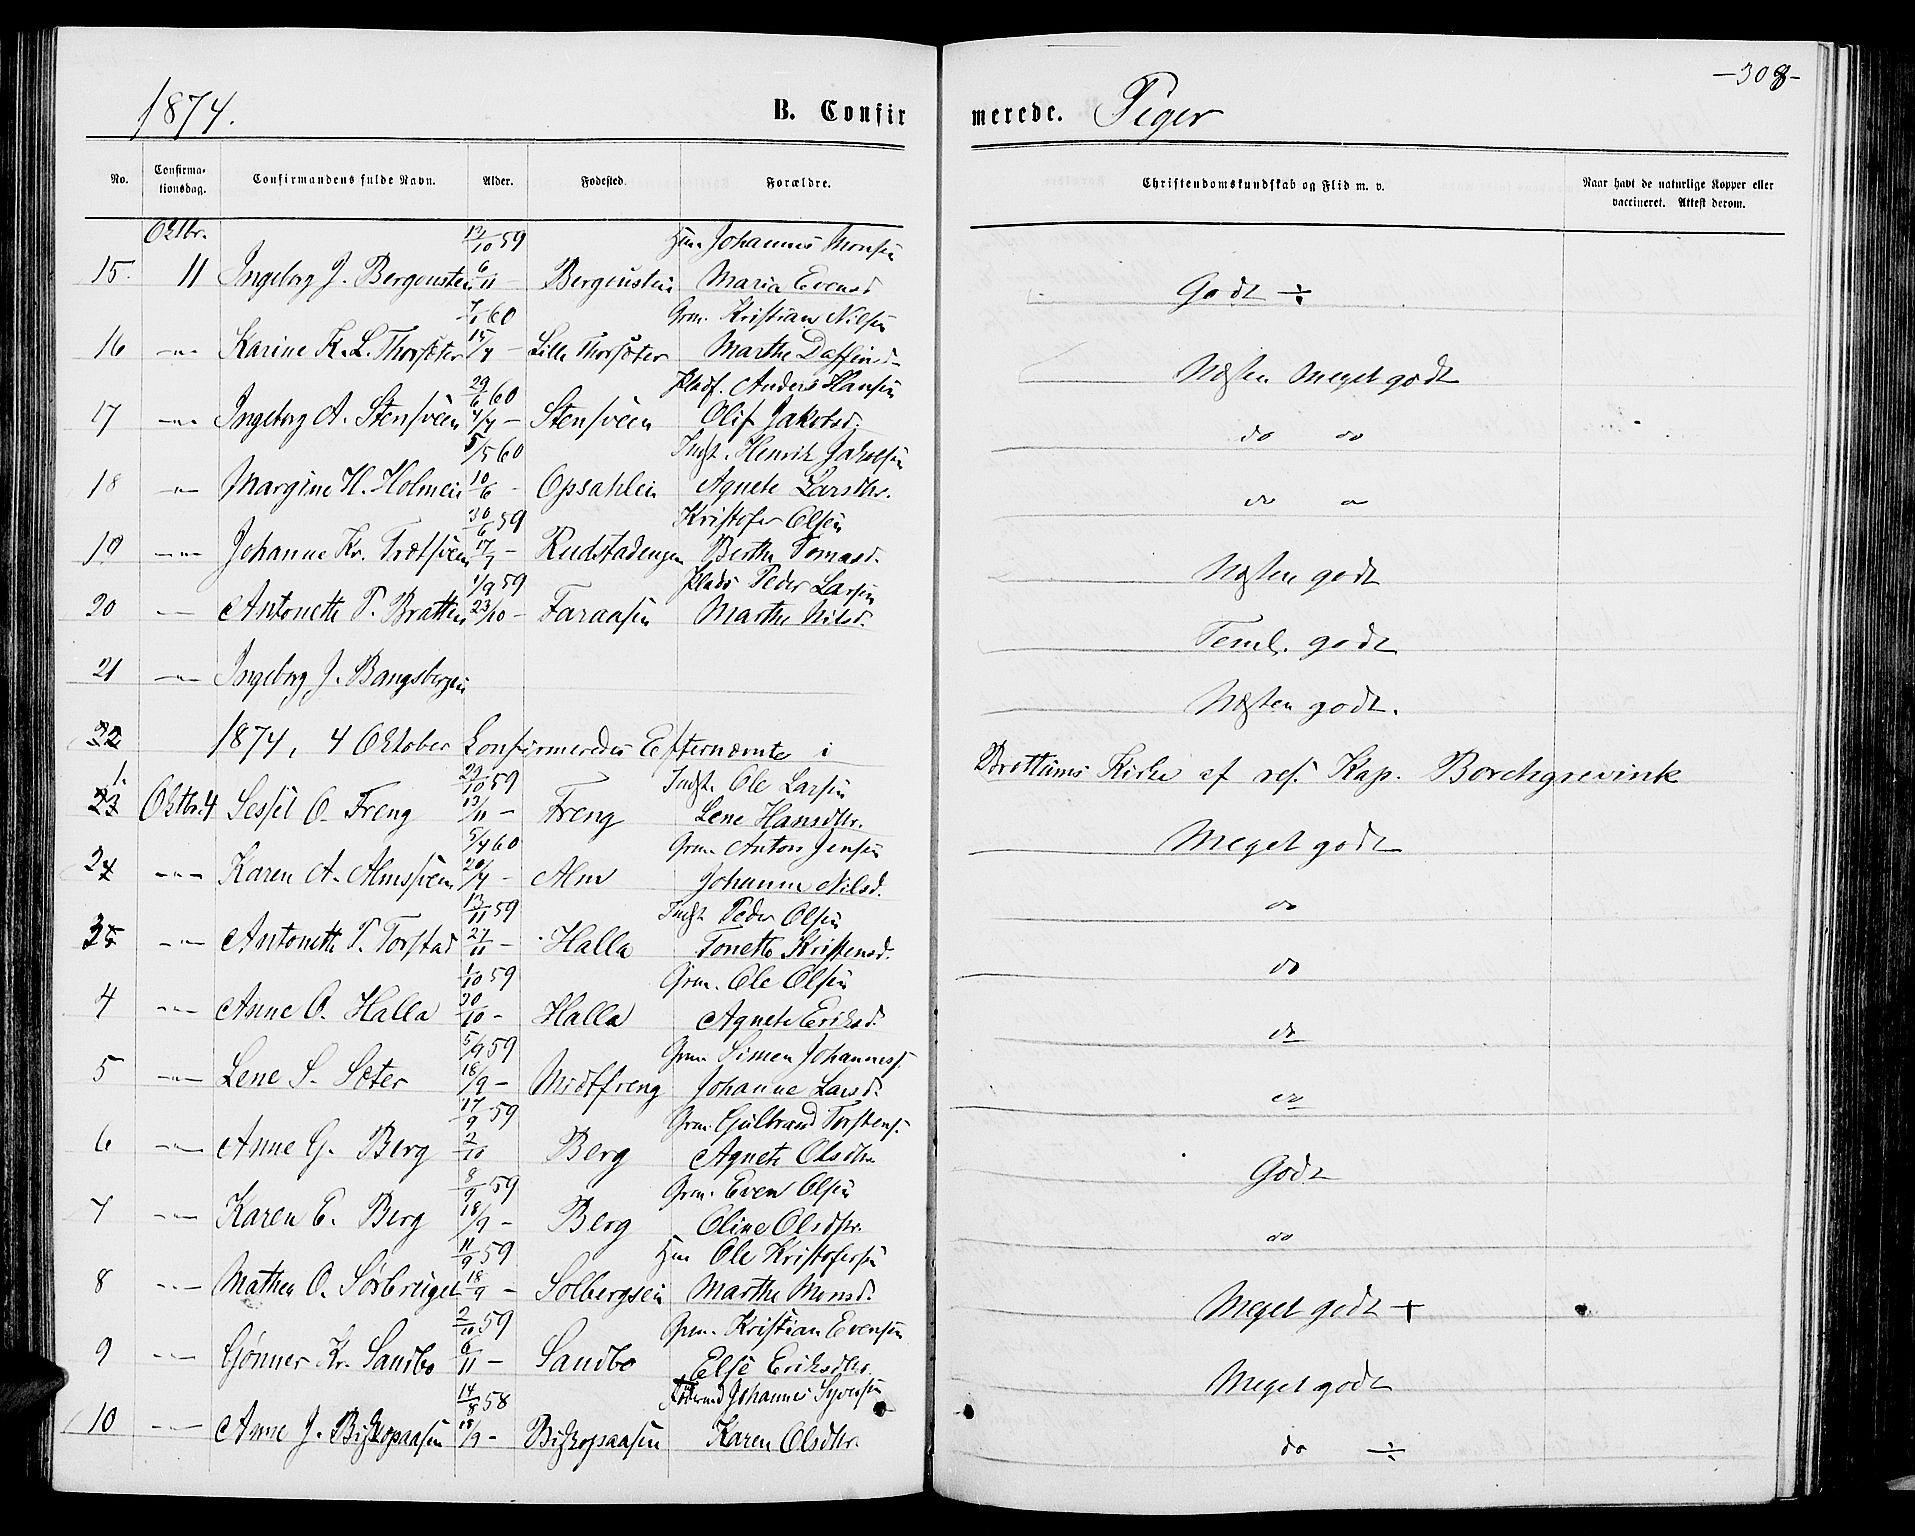 -308-
1874. B. Confirmerede. Piger
No. Confirmationsdag. Confirmandens fulde Navn. Alder. Fødested. Forældre. Christendomskundskab og Flid m. v. Naar havt de naturlige Kopper eller vaccineret. Attest derom.
Oktbr. 13/10 59 Hmn Johannes Monsen
15. 11 Ingeborg J. Bergensten 6/11 - Bergenstein Maria Evensd Godt ÷
7/1 60 Grm. Kristian Nilsen
16 -"- Karine K. L. Thorsæter 15/4 - Lille Thorsæter Marthe Daffinsd Næsten Meget godt
29/6 60 Pladsf. Anders Hansen
17 -"- Ingeborg A. Stensveen 4/7 - Stensveen Olif Jakobsd. do do
5/5 60 Indst. Henrik Jakobsen
18 -"- Margine H. Holmen 10/6 - Opsahlein Agnete Larsdtr. do do
30/6 59 Kristofer Olsen
19 -"- Johanne Kr. Trætsveen 17/7 - Rudstadengen Berthe Tomasd. Næsten godt
1/9 59 Plads Peder Larsen
20 -"- Antonette P. Bratten 23/10 - Faraasen Marthe Nilsd. Teml. godt
21 -"- Ingeborg J. Bangsbergen Næsten godt.
22 1874, 4 Oktober Confirmeredes Efternævnte i Brottums Kirke af res. Kap. Borchgrevink
1. 29/10 59 Indst. Ole Larsen
23 Oktbr. 4 Sessil O. Freng 13/11 - Freng Lene Hansdtr. Meget godt
5/4 60 Grm Anton Jensen
2 -"- Karen A. Almsveen 20/4 - Alm Johanne Nilsd. do
13/11 59 Indst Peder Olsen
3 -"- Antonette P. Torstad 27/11 - Halla Tonette Kristensd. do
1/10 59 Grm. Ole Olsen
4 -"- Anne O. Halla 30/10 - Halla Agnete Eriksd. do
5/9 59 Grm Simen Johanness.
5 -"- Lene S. Sæter 18/9 - Midtfreng Johanne Larsd. do
17/9 59 Grm. Gulbrand Torstens.
6 -"- Anne G. Berg 2/10 Berg Agnete Olsdtr Godt
8/9 59 Grm. Even Olsen
7 -"- Karen E. Berg 18/9 - Berg Oline Olsdtr. do
11/9 59 Hmn Ole Kristofersen
8 -"- Mathea O. Sørbreiget 18/9 - Solbergseien Marthe Monsd. Meget godt +
2/10 59 Grm. Kristian Evensen
9 -"- Gønner Kr. Sandbo 6/11 - Sandbo Else Eriksdtr. Meget godt
14/8 58 Johannes Syversen
10 -"- Anne J. Biskopaasen 18/9 - Biskopaasen Karen Olsdtr. do ÷